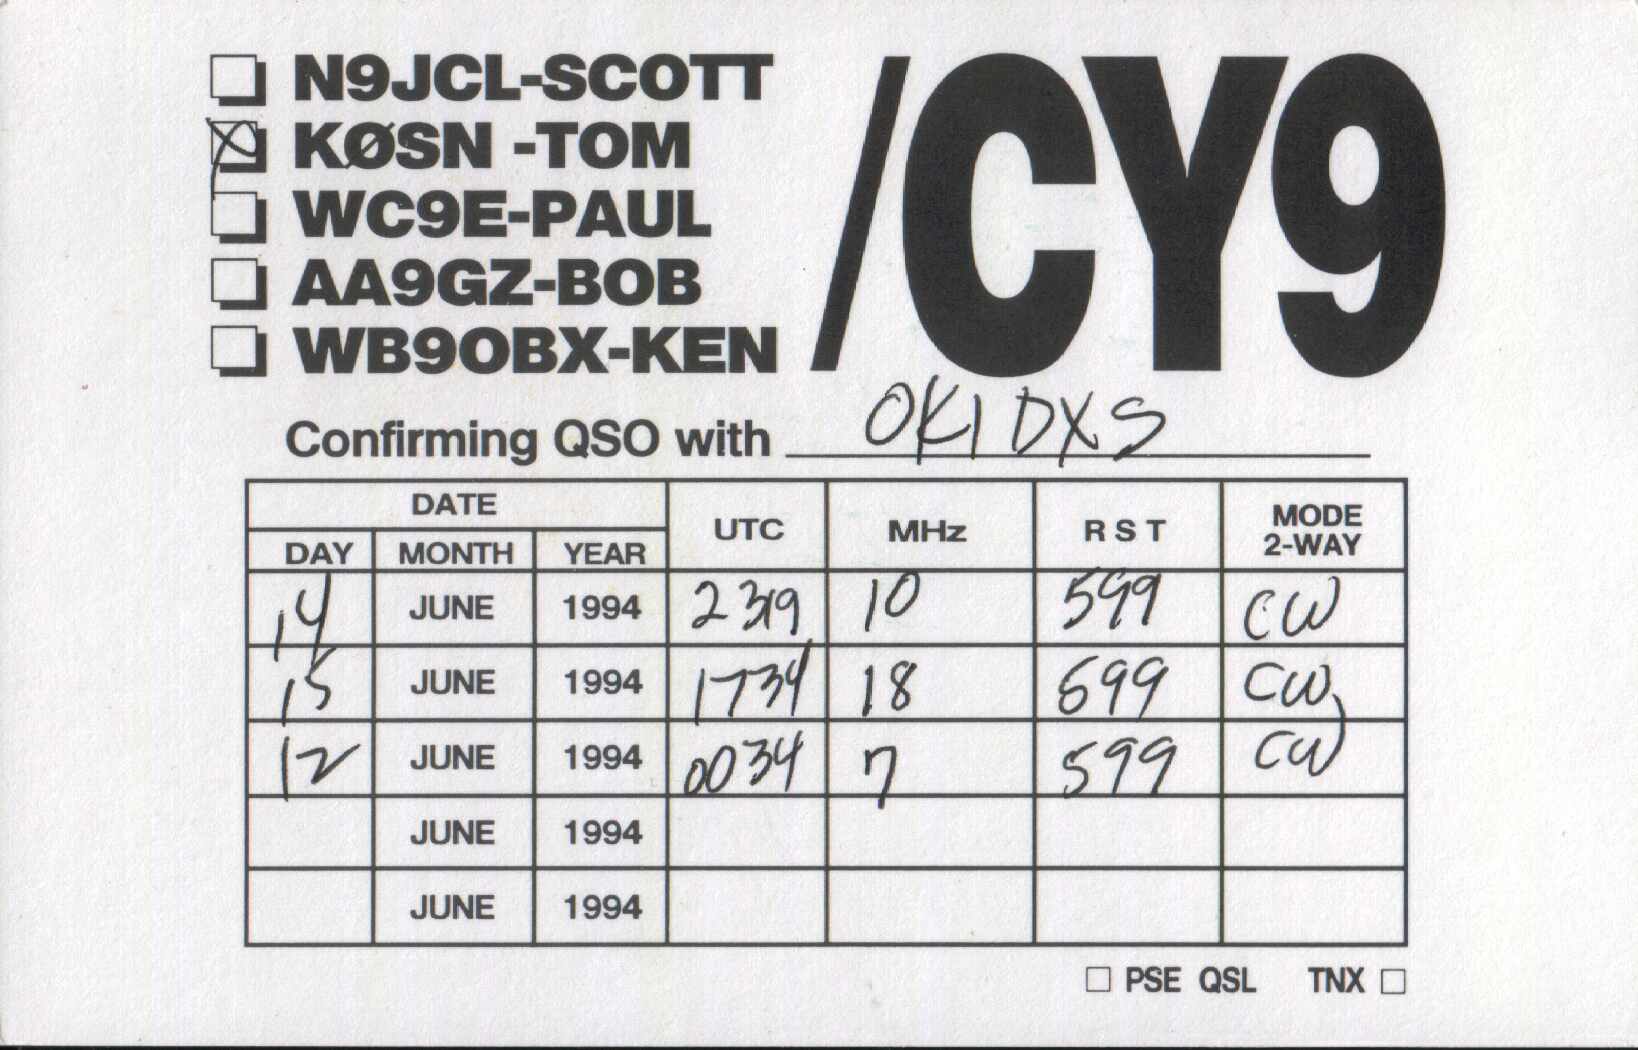 N9JCL-SCOTT
KØSN -TOM
WC9E-PAUL
AA9GZ-BOB
WB9OBX-KEN
/CY9
Confirming QSO with OK1DXS
DATE UTC MHz RST MODE 2-WAY
DAY MONTH YEAR
14 JUNE 1994 2319 10 599 CW
15 JUNE 1994 1734 18 599 CW
12 JUNE 1994 0034 7 599 CW
JUNE 1994
JUNE 1994
PSE QSL TNX